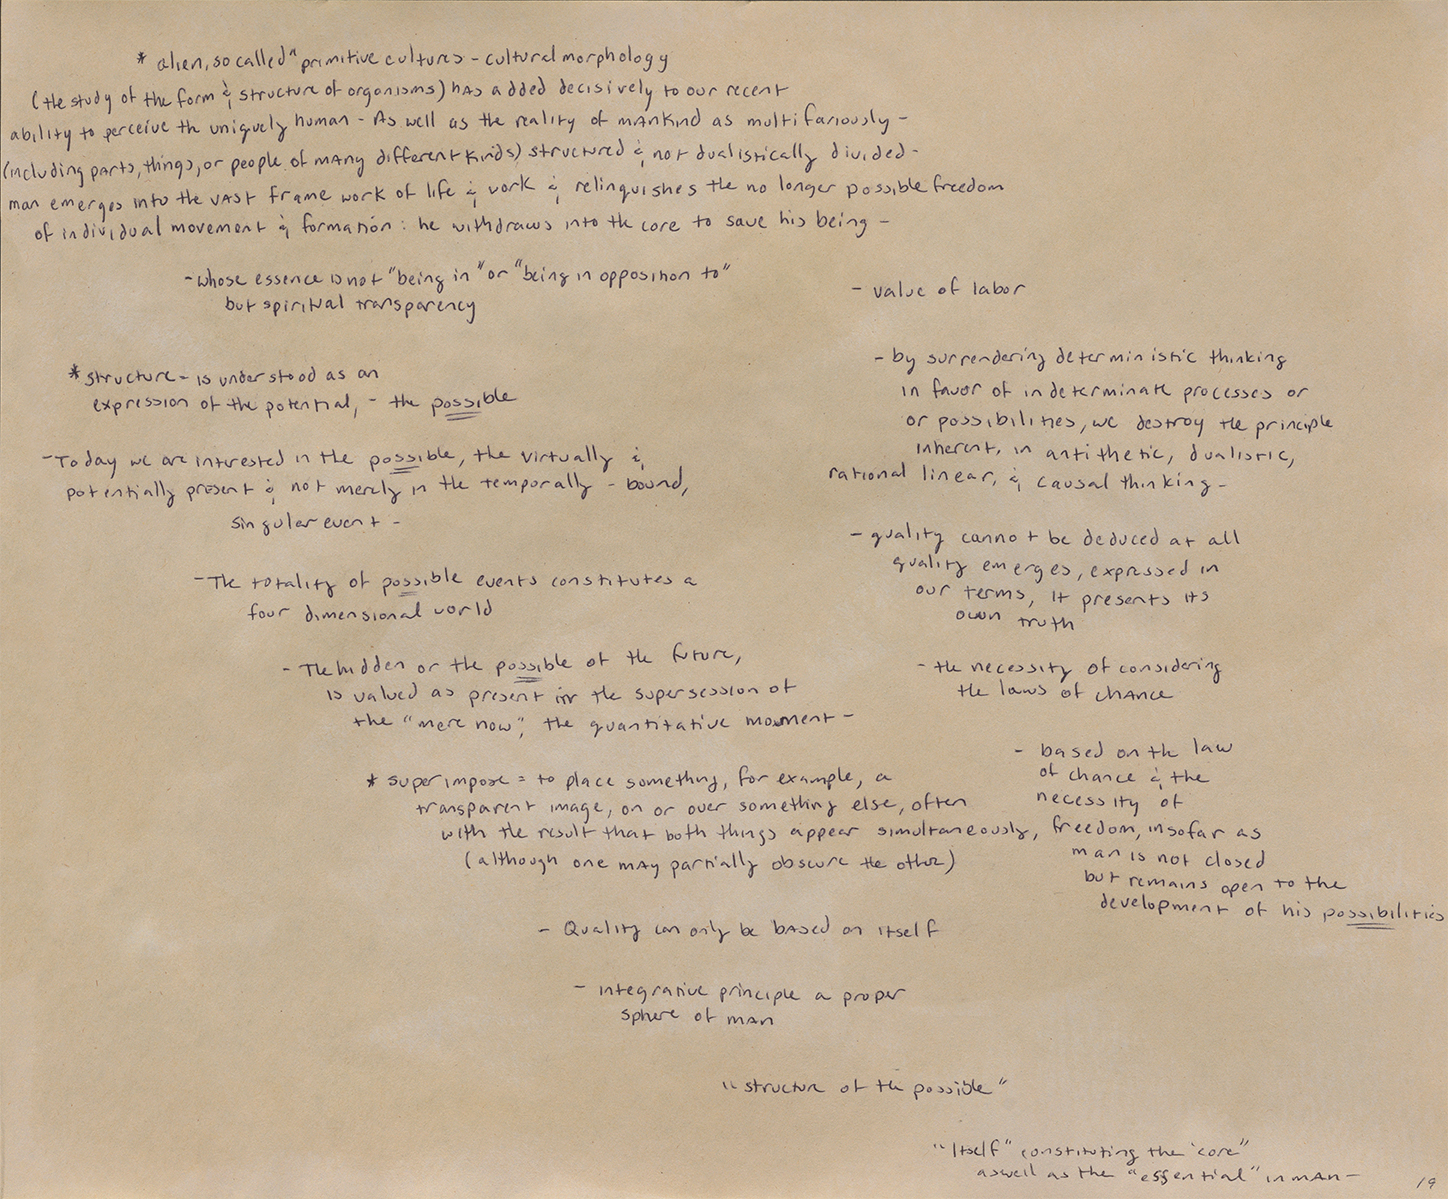 * alien, so called "primitive cultures - cultural morphology
(the study of the form & structure of organisms) has added decisively to our recent
ability to perceive th uniquely human - As well as the reality of mankind as multifariously -
(including parts, things, or people of many different kinds) structured & not dualistically divided -
man emerges into the vast frame work of life & work & relinquishes the no longer possible freedom
of individual movement & formation: he withdraws into the core to save his being -
- whose essence is not "being in" or "being in opposition to"
but spiritual transparency
* structure - is understood as an
expression of the potential, - the possible
- Today we are interested in the possible, the virtually &
potentially present & not merely in the temporally - bound,
singular event -
- The totality of possible events constitutes a
four dimensional world
- The hidden or the possible of the future,
is valued as present in the supersession of
the "mere now", the quantitative moment -
* superimpose = to place something, for example, a
transparent image, on or over something else, often
with the result that both things appear simultaneously,
(although one may partially obscure the other)
- Quality can only be based on itself
- integrative principle a proper
sphere of man
"structure of the possible"
- value of labor
- by surrendering deterministic thinking
in favor of indeterminate processes or
or possibilities, we destroy the principle
inherent, in antithetic, dualistic,
rational linear, & causal thinking -
- quality cannot be deduced at all
quality emerges, expressed in
our terms, it presents its
own truth
- the necessity of considering
the laws of chance
- based on the law
of chance & the
necessity of
freedom, insofar as
man is not closed
but remains open to the
development of his possibilities
"Itself" constituting the 'core"
aswell as the "essential" in man -
19